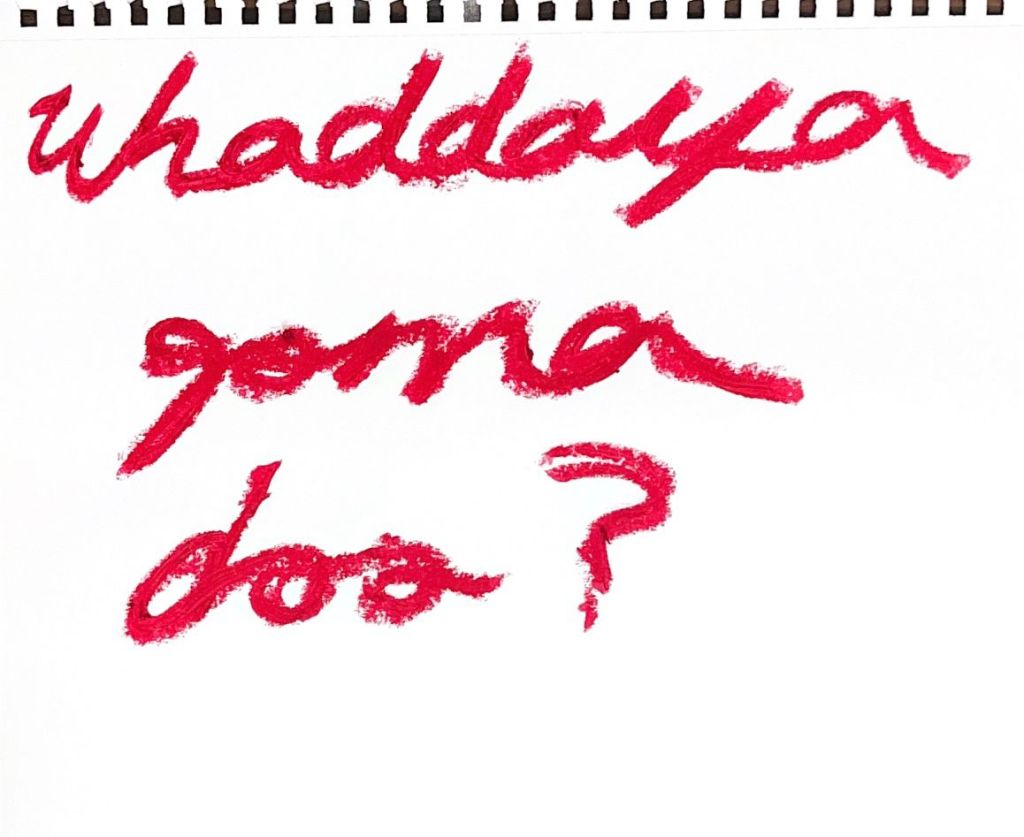 Whaddaya
gonna
doo?